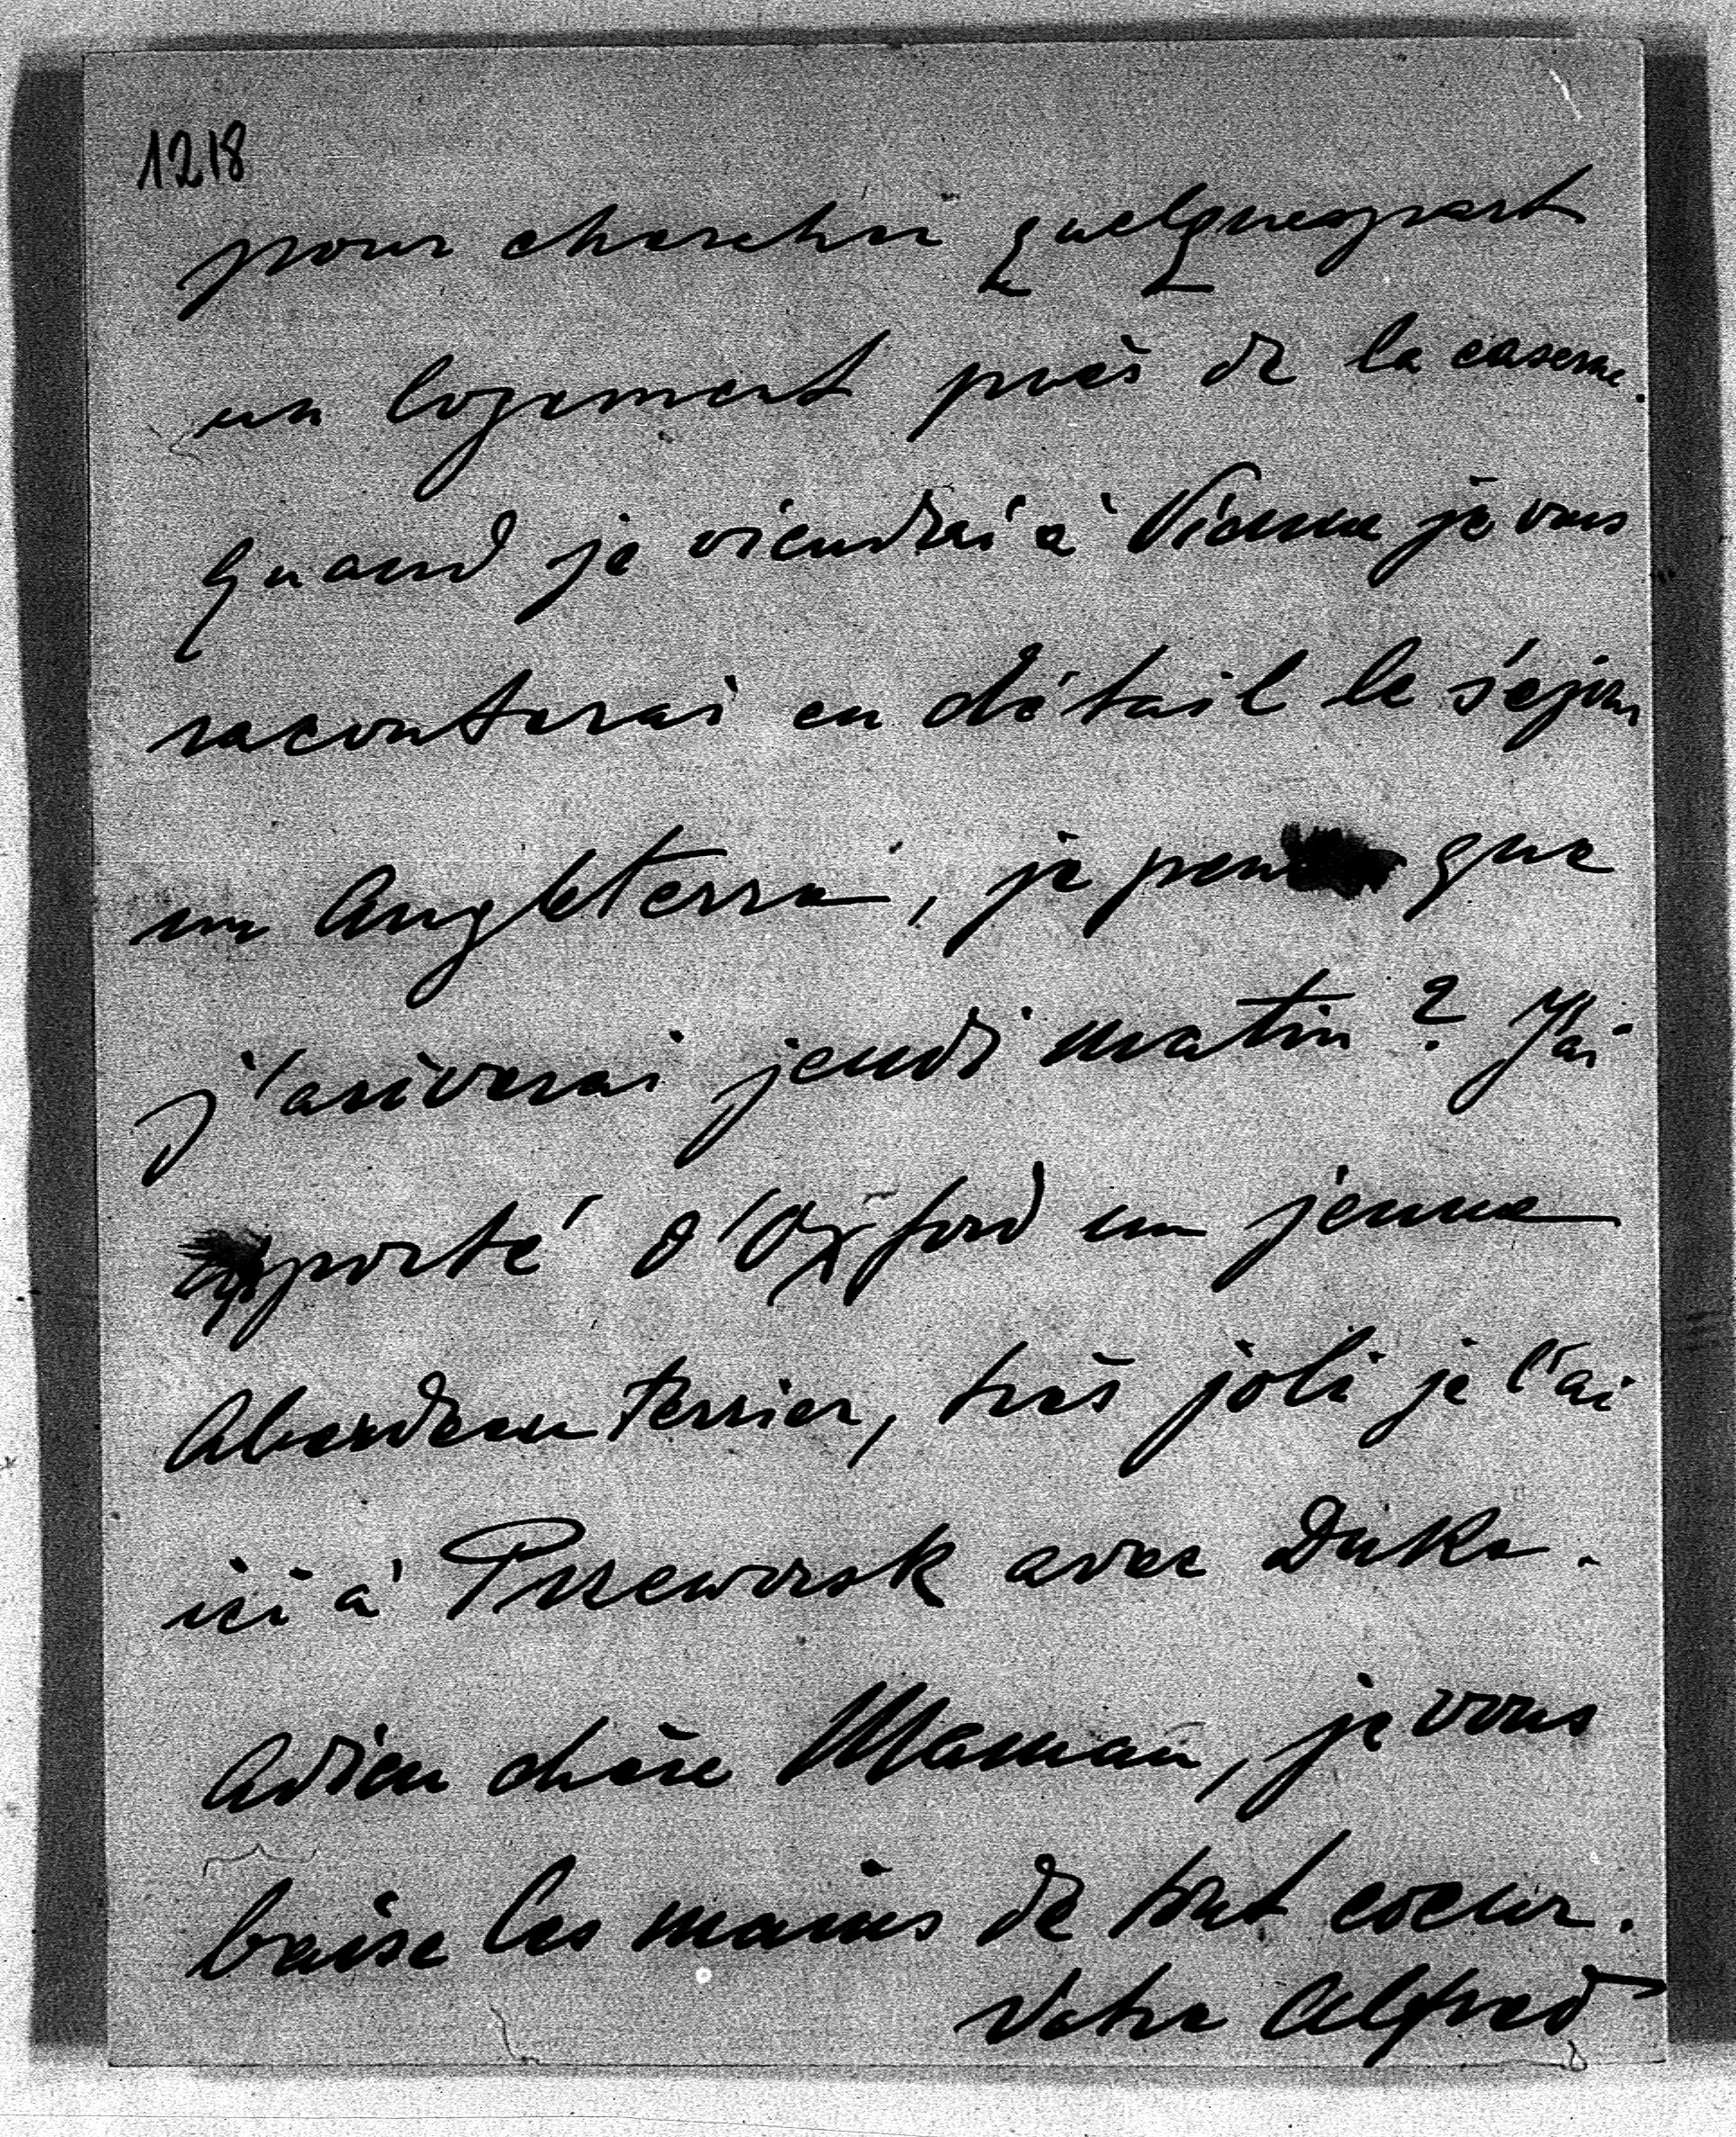 1218
pour chercher quelquespart
un logement près de la caserne.
Quand je viendrai à Vienne je vous
raconterai en détail le séjour
en Angleterre, je pense que
j'ariverai jeudi matin? J'ai
apporté d'Oxford un jeune
Aberdeen terrier, très joli je l'ai
ici à Przeworsk avec Duke.
Adieu chère Maman, je vous
baise les mains de tout coeur.
Votre Alfred